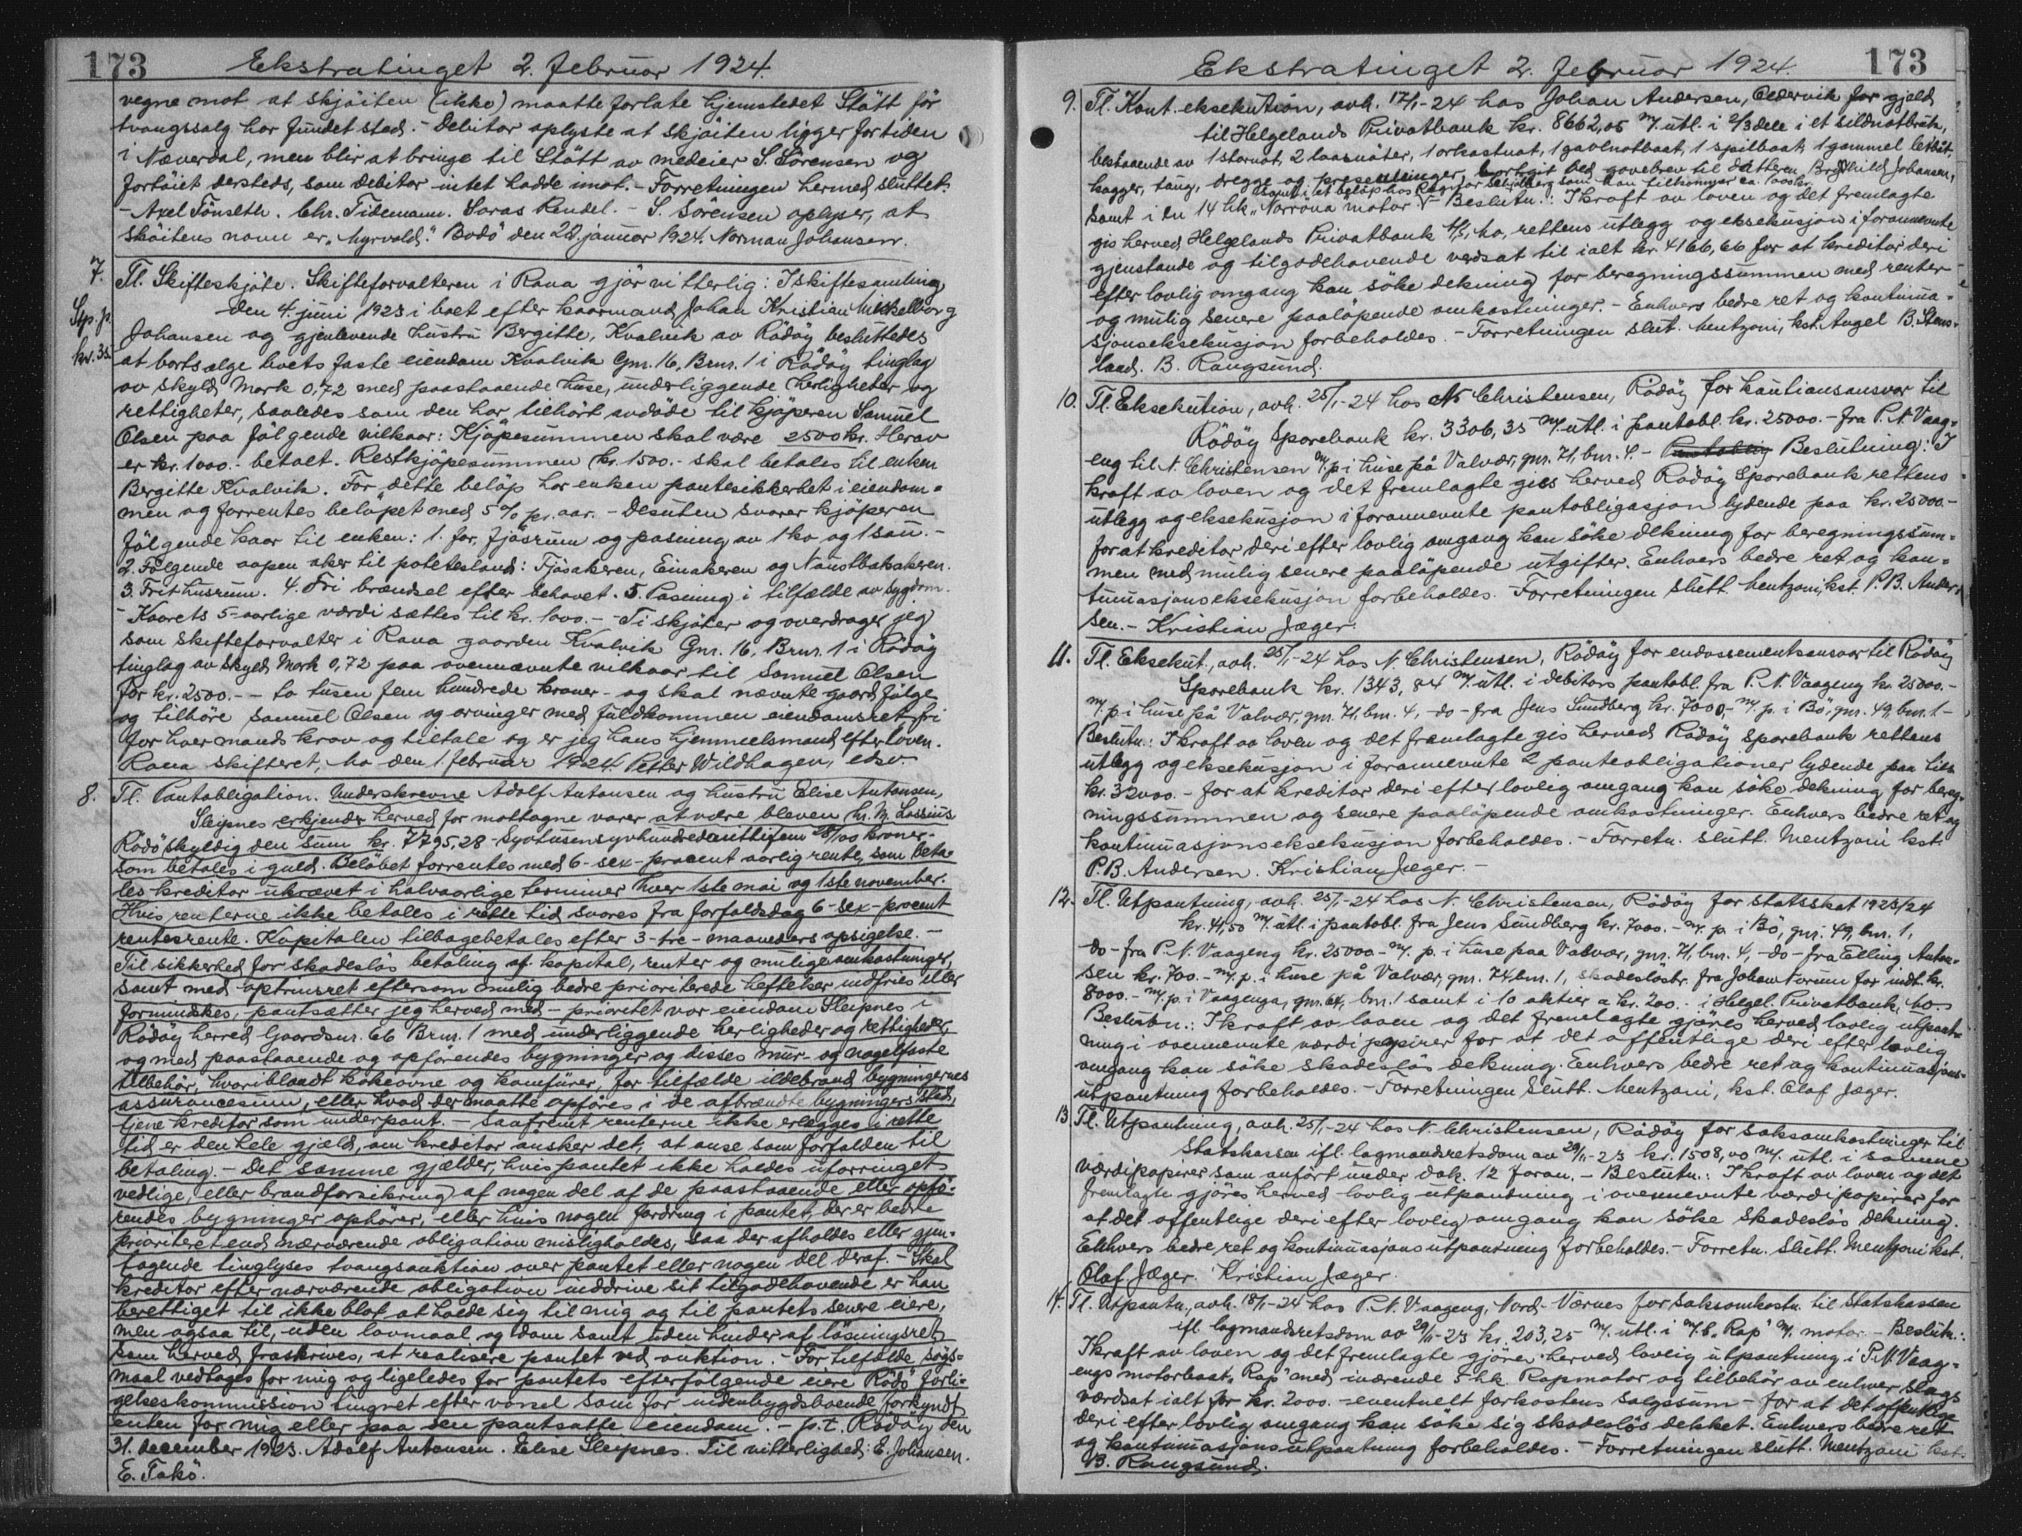 173
Ekstratinget 2. februar 1924.
vegne mot at skjöiten (ikke) maatte forlate hjemstedet Stött för
tvangssalg har fundet sted. - Debitor oplyste at skjöiten ligger for tiden
i Næverdal, men blir at bringe til Stött av medeier S. Sörensen og
fortöiet dersteds, som debitor intet hadde imot. - Forretningen hermed sluttet.
- Axel Tönseth. Chr. Tidemann. Saras Rendel. - S. Sörensen oplyser, at
sköitens navn er „Myrvold." Bodö den 22. januar 1924. Norman Johansen.
7. Tl. Skifteskjöte. Skifteforvalteren i Rana gjör vitterlig: I skiftesamling
den 4. juni 1923 i boet efter kaarmand Johan Kristian Mikkelborg
Stp. p.
kr. 35
Johansen og gjenlevende hustru Bergitte, Kvalvik av Rödöy besluttedes
at bortsælge boets faste eiendom Kvalvik Gnr. 16, Brnr. 1 i Rödöy tinglag
av skyld Mark 0,72 med paastaaende huse, underliggende herligheter og
rettigheter, saaledes som den har tilhört avdöde til kjöperen Samuel
Olsen paa fölgende vilkaar: Kjöpesummen skal være 2500 kr. Herav
er kr. 1000.- betalt. Restkjöpesummen kr. 1500.- skal betales til enken
Bergitte Kvalvik. For dette belöp har enken pantesikkerhet i eiendom-
men og forrentes belöpet med 5% pr. aar. - Desuten svarer kjöperen
fölgende kaar til enken: 1. for, fjösrum og pasning av 1 ko og 1 sau. -
2. Fölgende aapen aker til potetesland: Fjösakeren, Einakeren og Naustbakakeren.
3. Frit husrum. 4. Fri brændsel efter behovet. 5. Pasning i tilfælde av sygdom.
- Kaarets 5-aarlige værdi sættes til kr. 1000.- - Ti skjöter og overdrager jeg
som skifteforvalter i Rana gaarden Kvalvik Gnr. 16, Brnr. 1 i Rödöy
tinglag av skyld Mark 0,72 paa ovennævnte vilkaar til Samuel Olsen
for kr. 2500.- - to tusen fem hundrede kroner - og skal nævnte gaard fölge
og tilhöre Samuel Olsen og arvinger med fuldkommen eiendomsret, fri
for hver mands krav og tiltale og er jeg hans hjemmelsmand efter loven.
Rana skifteret, Mo den 1. februar 1924. Petter Wildhagen, edsv.
8. Tl. Pantobligation. Underskrevne Adolf Antonsen og hustru Elise Antonsen,
Sleipnes erkjender herved for mottagne varer at være bleven hr. M. Lossius
Rödö skyldig den sum kr. 7795,28 - Syvtusensyvhundredenittifem 28/100 kroner -
som betales i guld. Belöbet forrentes med 6 - sex - procent aarlig rente, som beta-
les kreditor ukrævet i halvaarlige terminer hver 1ste mai og 1ste november.
Hvis renterne ikke betales i rette tid svares fra forfaldsdag 6 - sex - procent
rentesrente. Kapitalen tilbagebetales efter 3 - tre - maaneders opsigelse. -
Til sikkerhed for skadeslös betaling af kapital, renter og mulige omkostninger,
samt med optrinsret eftersom mulig bedre prioriterede heftelser indfries eller
formindskes, pantsætter jeg herved med - prioritet vor eiendom Sleipnes i
Rödöy herred Gaardsnr. 66 Brnr. 1 med underliggende herligheder og rettigheder
og med paastaaende og opförendes bygninger og disses mur- og nagelfaste
tilbehör, hvoriblandt kokeovne og komfürer, for tilfælde ildebrand bygningernes
assurancesum, eller hvad der maatte opföres i de afbrændte bygningers sted,
tjene kreditor som underpant. - Saafremt renterne ikke erlægges i rette
tid er den hele gjæld, om kreditor önsker det, at anse som forfalden til
betaling. - Det samme gjælder, hvis pantet ikke holdes uforringet
vedlige, eller brandforsikring af nogen del af de paastaaende eller opfö-
rendes bygninger ophörer, eller hvis nogen fordring i pantet, der er bedre
prioriteret end nærværende obligation misligholdes, saa der afholdes eller gjen-
tagende tinglyses tvangsauktion over pantet eller nogen del deraf. - Skal
kreditor efter nærværende obligation inddrive sit tilgodehavende er han
berettiget til ikke blot at holde sig til mig og til pantets senere eiere,
men ogsaa til, uden lovmaal og dom samt uden hinder af lösningsret
som herved fraskrives, at realisere pantet ved auktion. - For tilfælde sögs-
maal vedtages for mig og ligeledes for pantets efterfölgende eiere Rödö forli-
gelseskommission tingret efter varsel som for indenbygdsboende forkyndt
enten for mig eller paa den pantsatte eiendom. - p.t. Rödöy den
31. december 1923. Adolf Antonsen. Elise Sleipnes. Til vitterlighed: E. Johansen.
E. Tokö.
173
Ekstratinget 2. februar 1924.
9. Tl. Kont. eksekution, avh. 17/1-24 hos Johan Andersen, Oldervik for gjeld
til Helgelands Privatbank kr. 8662,05 m/ utl. i 2/3 dele i et sildnotbruk,
bestaaende av 1 stornot, 2 laasnöter, 1 orkastnot, 1 gavlnotbaat, 1 spilbaat, 1 gammel letbåt,
kagger, taug, dregge og presenninger, bortgit ved gavebrev til datteren Bryhild Johansen,
samt i et beløp hos Ragnvar Selfors som han tilkommer ca. 1000 kr.
samt i en 14 hk „Norröna" motor. - Beslutn.: I kraft av loven og det fremlagte
gis herved Helgelands Privatbank A/S, Mo, rettens utlegg og eksekusjon i forannevnte
gjenstande og tilgodehavende verdsat til ialt kr. 4166,66 for at kreditor deri
efter lovlig omgang kan söke dekning for beregningssummen med renter
og mulig senere paalöpende omkostninger. - Enhvers bedre ret og kontinua-
sjonseksekusjon forbeholdes. - Forretningen slut. Mentzoni, kst. Angel B. Stens-
land. B. Rangsund.
10. Tl. Eksekution, avh. 25/1-24 hos N. Christensen, Rödöy for kautionsansvar til
Rödöy Sparebank kr. 3306,35 m/ utl. i pantobl. kr. 25000.- fra P. N. Vaag-
eng til N. Christensen m/ p. i huse på Valvær, gnr. 71, bnr. 4. - Beslutning: I
kraft av loven og det fremlagte gies herved Rödöy Sparebank rettens
utlegg og eksekusjon i forannevnte pantobligasjon lydende paa kr. 25000.-
for at kreditor deri efter lovlig omgang kan söke dekning for beregningssum-
men med mulig senere paalöpende utgifter. Enhvers bedre ret og kon-
tinuasjonseksekusjon forbeholdes. - Forretningen slutt. Mentzoni, kst. P. B. Ander-
sen. - Kristian Jæger.
11. Tl. Eksekut., avh. 25/1-24 hos N. Christensen, Rödöy for endossementsansvar til Rödöy
Sparebank kr. 1343,84 m/ utl. i debitors pantobl. fra P. N. Vaageng kr. 25000.-
m/ p. i huse på Valvær, gnr. 71, bnr. 4, - do - fra Jens Sundberg kr. 7000,- m/ p. i Bö, gnr. 49, bnr. 1 -
Beslutn.: I kraft av loven og det fremlagte gis herved Rödöy Sparebank rettens
utlegg og eksekusjon i forannevnte 2 panteobligationer lydende paa tils.
kr. 32000.- for at kreditor deri efter lovlig omgang kan söke dekning for bereg-
ningssummen og senere paalöpende omkostninger. Enhvers bedre ret og
kontinuasjonseksekusjon forbeholdes. - Forretn. slutt. Mentzoni kst.
P. B. Andersen. Kristian Jæger. -
12. Tl. Utpantning, avh. 25/1-24 hos N. Christensen, Rödöy for statsskat 1923/24
kr. 41,50 m/ utl. i pantobl. fra Jens Sundberg kr. 7000.- m/ p. i Bö, gnr. 49, bnr. 1,
- do - fra P. N. Vaageng kr. 25000.- m/ p. i huse paa Valvær, gnr. 71, bnr. 4, - do - fra Elling Anton-
sen kr. 700.- m/ p. i huse på Valvær, gnr. 74, bnr. 1, skadeslösbr. fra Johan Forum for indt. kr.
8000.- m/ p. i Vaagenga, gnr. 64, bnr. 1 samt i 10 aktier a kr. 200.- i Helgel. Privatbank, Mo.
Beslutn.: I kraft av loven og det fremlagte gjöres herved lovlig utpant-
ning i ovennevnte værdipapirer for at det offentlige deri efter lovlig
omgang kan söke skadeslös dekning. Enhvers bedre ret og kontinuasjons-
utpantning forbeholdes. - Forretningen slutt. Mentzoni, kst. Olaf Jæger.
13. Tl. Utpantning, avh. 25/1-24 hos N. Christensen, Rödöy for saksomkostninger til
Statskassen ifl. lagmandsretsdom av 29/11-23 kr. 1508,00 m/ utl. i samme
værdipapirer som anfört under dok. 12 foran. - Beslutn.: I kraft av loven og det
fremlagte gjöres herved lovlig utpantning i ovennevnte værdipapirer for
at det offentlige deri efter lovlig omgang kan söke skadeslös dekning.
Enhvers bedre ret og kontinuasjonsutpantning forbeholdes. - Forretn. slutt. Mentzoni kst.
Olaf Jæger. Kristian Jæger.
14. Tl. Utpantn., avh. 18/1-24 hos P. N. Vaageng, Nord-Værnes for saksomkostn. til Statskassen
ifl. lagmandsretsdom av 29/11-23 kr. 203,25 m/ utl. i m/b „Rap" m/ motor. - Beslutn.:
I kraft av loven og det fremlagte gjöres herved lovlig utpantning i P. N. Vaag-
engs motorbaat „Rap" med iværende 5 hk Rapmotor og tilbehör av enhver slags
værdsat ialt for kr. 2000.- eventuelt forkostens salgssum - for at det offentlige
deri efter lovlig omgang kan söke sig skadeslös dekket. Enhvers bedre ret
og kontinuasjonsutpantning forbeholdes. - Forretningen slutt. Mentzoni kst.
B. Rangsund.